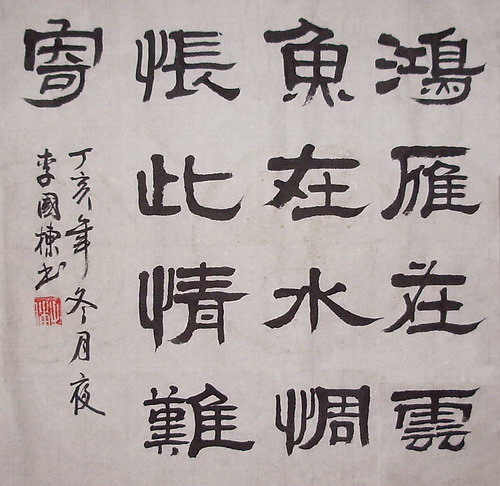 鴻雁在雲
魚在水惆
悵此情難
寄
丁亥年冬月夜
李國棟書